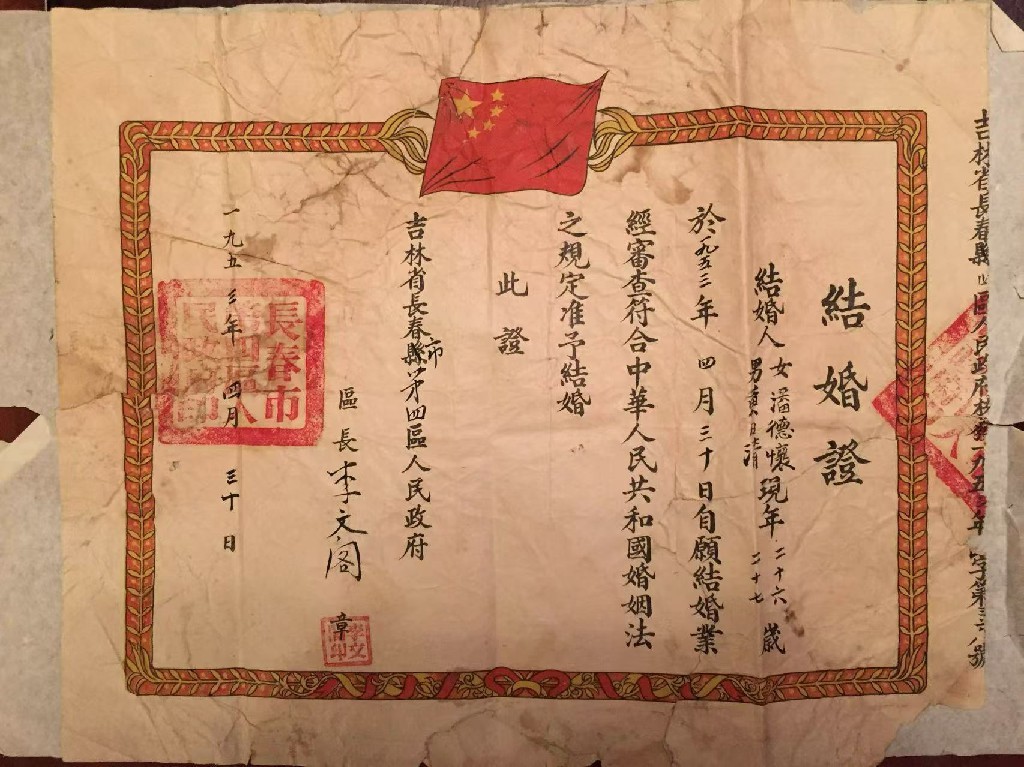 吉林省長春縣四區人民政府
結婚證
結婚人 女 潘德懷 現年 二十六 歲
男 二十七
於一九五三年四月三十日自願結婚業
經審查符合中華人民共和國婚姻法
之規定准予結婚
此證
吉林省長春縣市第四區人民政府
區長 李文阁 章
一九五三年四月三十日
長春市